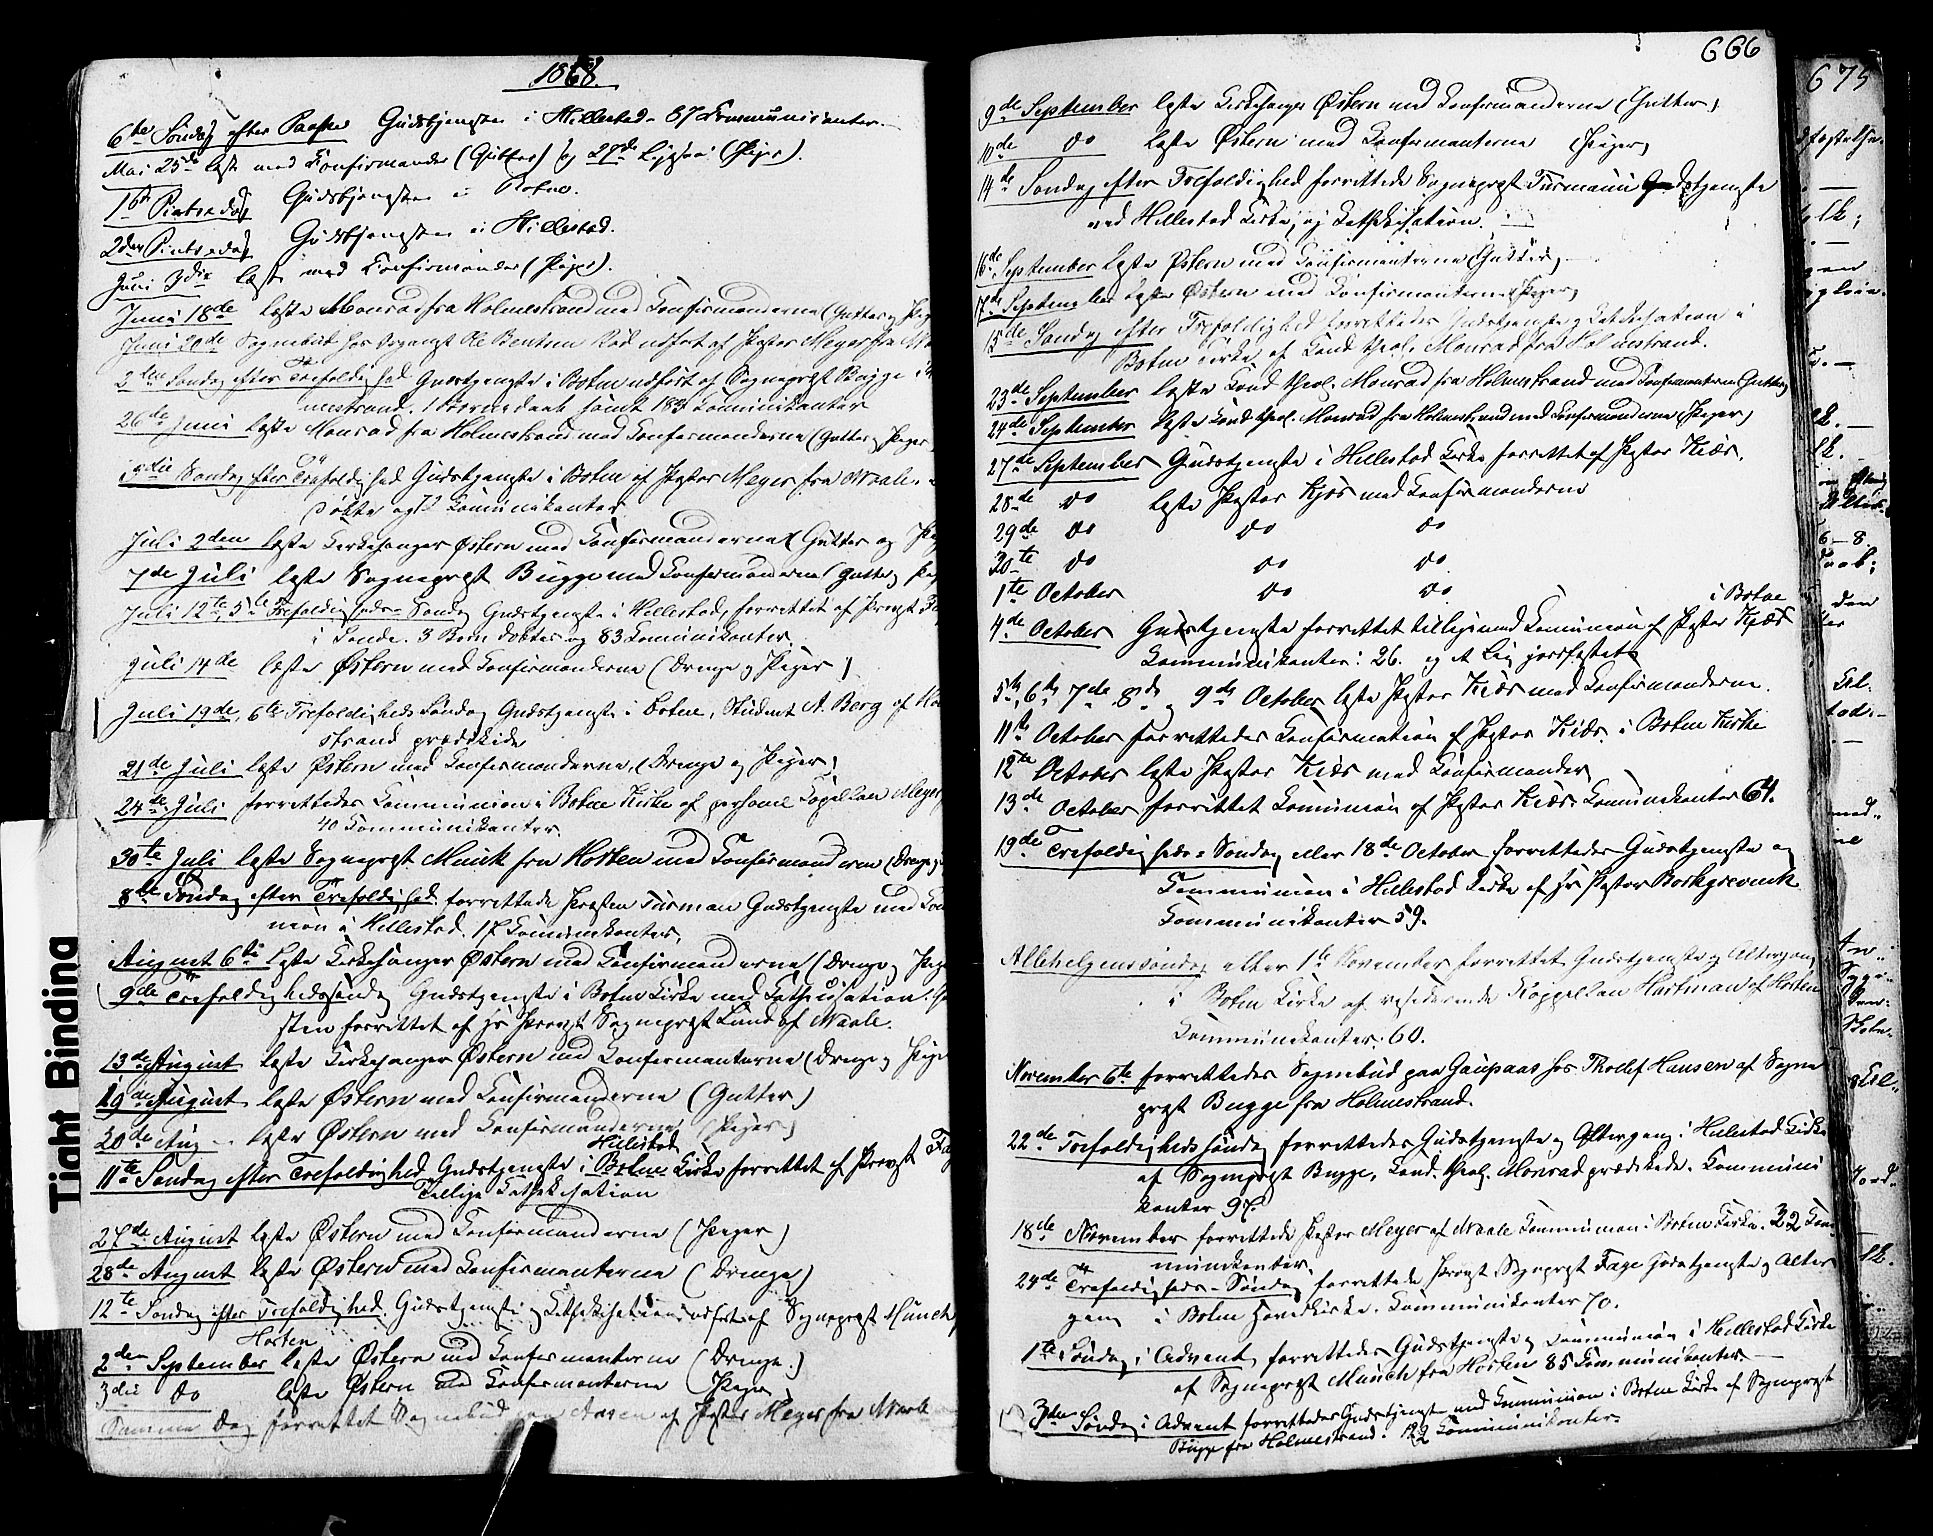 1868.
6te Søndag efter Paaske Gudstjeneste i Hillestad. 67 Communicanter.
Mai 25de læst med Confirmander (Gutter) og 27de ligesaa (Piger).
1ste Pintsedag Gudstjenesten i Botne.
2den Pintsedag Gudstjenesten i Hillestad.
Juni 3die læst med Confirmander (Piger).
Juni 18de læste Monrad fra Holmestrand med Confirmanderne (Gutter og Pig
Juni 20de Sognebud hos Ole Bentsen udført af Pastor Meyer fra
2den Søndag efter Trefoldighed Gudstjeneste i Botne udført af Sognepræst Bugge
mestrand. 1 Barn døbt samt Kommunikanter
26de Juni læste Monrad fra Holmestrand med Confirmanderne (Gutter og Piger
Søndag efter Trefoldighed Gudstjeneste i Botne af Pastor Meyer fra Vaale.
døbte og Kommunikanter
Juli 2den læste Kirkesanger Østern med Confirmanderne (Gutter og Pig
7de Juli læste Sognepræst Bugge med Confirmanderne (Gutter og Pig
Juli 12te, 5te Trefoldigheds-Søndag Gudstjeneste i Hillestad, forrettet af Provst
i Sande. 3 Børn døbtes og 83 Kommunikanter
Juli 14de læste Østern med Confirmanderne (Drenge og Piger)
Juli 19de, 6te Trefoldigheds Søndag Gudstjeneste i Botne, Student A. Berg af Ho
strand prædikede
21de Juli læste Østern med Confirmanderne, (Drenge og Piger)
24de Juli forrettedes Communion i Botne Kirke af personel Capellan Meyer,
40 Communikanter.
30te Juli læste Sognepræst Munck fra Horten med Confirmanderne (Drenge
8de Søndag efter Trefoldighed forrettede Præsten Turman Gudstjeneste med Com
nion i Hillestad. 17 Communikanter.
August 6te læste Kirkesanger Østern med Confirmanderne (Drenge og Pige
9de Trefoldighedssøndag Gudstjeneste i Botne Kirke med Cathekisation.
sten forrettet af Hr Provst Sognepræst Lund af Vaale.
13de August læste Kirkesanger Østern med Confirmanterne (Drenge og Pige
19de August læste Østern med Confirmanderne (Gutter)
20de Aug læste Østern med Confirmanderne (Piger)
Hillestad
11te Søndag efter Trefoldighed Gudstjeneste i Botne Kirke forrettet af Provst Fag
Tillige Cathekisation
27de August læste Østern med Confirmanderne (Piger)
28de August læste Østern med Confirmanterne (Drenge)
12te Søndag efter Trefoldighed. Gudstjeneste og Cathekisation udført af Sognepræst Münch,
Horten
2den September læste Østern med Confirmanterne (Drenge.)
3die do læste Østern med Confirmanterne (Piger)
Samme Dag forrettet Sognebud paa Aasen af Pastor Meyer fra Vaale
666
9de September læste Kirkesanger Østern med Confirmanderne (Gutter)
10de do læste Østern med Confirmanterne (Piger)
14de Søndag efter Trefoldighed forrettede Sognepræst Turmann Gudstjeneste
ved Hillestad Kirke, og Cathekisation.
16de September læste Østern med Confirmanterne (Gutter)
17de September læste Østern med Confirmanterne (Piger)
15de Søndag efter Trefoldighed forrettedes Gudstjeneste og Cathekisation i
Botne Kirke af Cand. theol. Monrad fra Holmestrand.
23de September læste Cand theol. Monrad fra Holmestrand med Confirmanterne Gutter
24de September læste Cand theol. Monrad fra Holmestrand med Confirmanderne (Piger)
27de September Gudstjeneste i Hillestad Kirke forrettet af Pastor Kiær.
28de do læste Pastor Kjær med Confirmanderne
29de do do do
30te do do do
1te October do do
i Botne
4de October Gudstjeneste forrettet tilligemed Communion af Pastor Kjær
Communikanter: 26. og et Lig jordfæstet
5te, 6te, 7de, 8de og 9de October læste Pastor Kiær med Confirmanderne.
11te October forrettedes Confirmation af Pastor Kiær. i Botne Kirke
12te October læste Pastor Kiær med Confirmander
13de October forrettet Communion af Pastor Kiær. Communikanter 64.
19de Trefoldigheds-Søndag eller 18de October forrettedes Gudstjeneste og
Communion i Hillestad Kirke af Hr Pastor Borchgrevink
Communikanter 59.
Allehelgenssøndag eller 1te November forrettet Gudstjeneste og Altergang
i Botne Kirke af residerende Kappellan Hartman af Horten
Communikanter: 60.
November 6te forrettedes Sognebud paa Gaupaas hos Tholef Hansen af Sogne
præst Bugge fra Holmestrand.
22de Trefoldigheds søndag forrettedes Gudstjeneste og Altergang i Hillestad Kirke
af Sognepræst Bugge, Cand. theol. Monrad prædikede. Communi
kanter 97.
18de November forrettede Pastor Meyer af Vaale Communion i Botne Kirke. 32 Com
munikanter.
24de Trefoldigheds-Søndag forrettede Provst Sognepræst Fage Gudstjeneste og Alter
gang i Botne Hovedkirke. Communikanter 70.
1te Søndag i Advent forrettedes Gudstjeneste og Communion i Hillestad Kirke
af Sognepræst Münch fra Horten 85 Communikanter.
3den Søndag i Advent forrettedes Gudstjeneste med Communion i Botne Kirke af Sognepræst
Bugge fra Holmestrand. 122 Communikanter.
675
Tight Binding